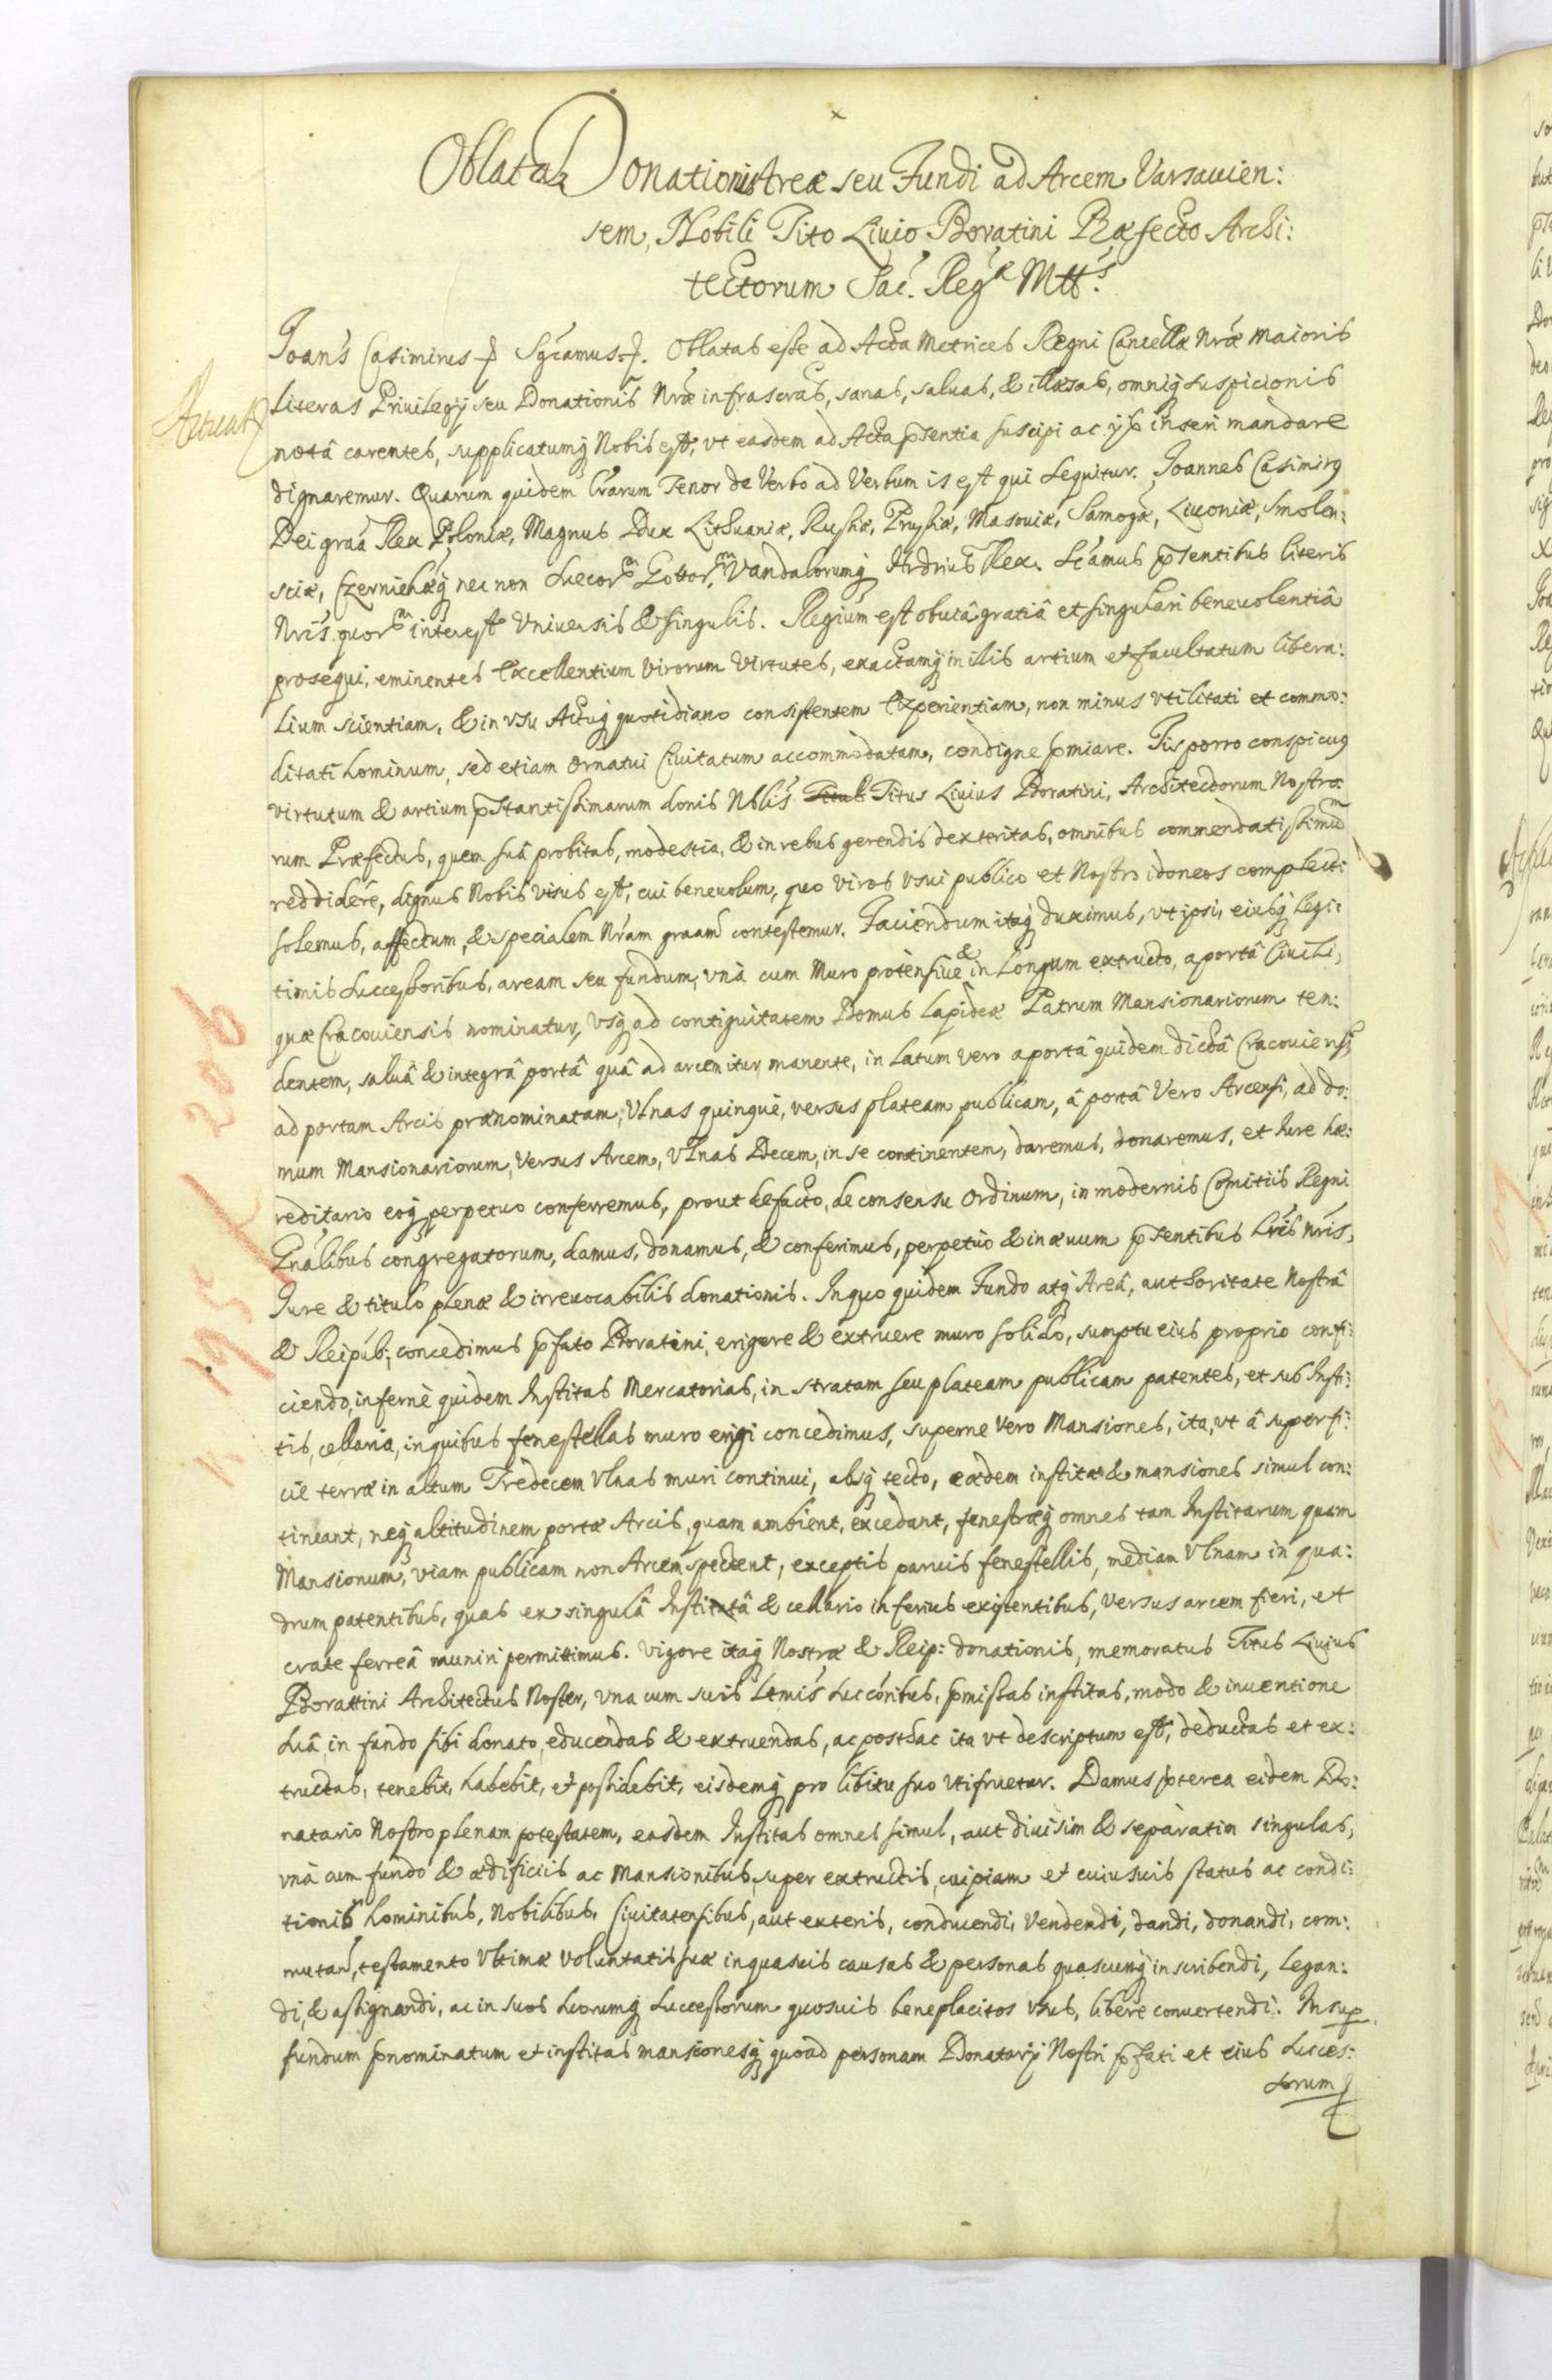 Oblata Donationis Areæ seu Fundi ad Arcem Varsauien:
sem, Nobili Tito Liuio Boratini Præfecto Archi:
tectorum Sac. Regæ Mttis
Joan's Casimirus Sgcamus. Oblatas esse ad Acta Metrices Regni Cancellæ Nræ maioris
Acticat
literas Priuilegij seu Donationis Nræ infrascrás, sanas, saluas, & illæsas, omniq suspicionis
notâ carentes, supplicatumq Nobis est, vt easdem ad Acta pſentia suscipi ac ijs inseri mandare
dignaremur. Quarum quidem lrarum Tenor de Verbo ad Verbum is est qui sequitur. Joannes Casimirg
Dei graâ Rex Poloniæ, Magnus Dux Lithuaniæ, Russiæ, Prussiæ, Masouiæ, Samogæ, Liuoniæ, Smolen:
sciæ, Czerniehœq nec non Suecorm Gottorm Vandalorumq Hrdrius Rex. Scamus pſentibus literis
Nris quorm interest Vniuersis & singulis. Regium est obuiâ gratiâ et singulari beneuolentiâ
prosequi, eminentes Excellentium Virorum Virtutes, exactamq in illis artium et facultatum libera:
lium scientiam, & in vsu Actuq quotidiano consistentem Experientiam, non minus vtilitati et commo:
ditati hominum, sed etiam Ornatui Ciuitatum accommodatam, condigne pmiare. Iis porro conspicug
virtutum & artium pstantissimarum donis Nblis Titus Titus Liuius Boratini, Architectorum Nostro:
rum Præfectus, quem suâ probitas, modestia, & in rebus gerendis dexteritas, omnibus commendatissimum
reddidére, dignus Nobis visus est, cui beneuolum, quo viros vsui publico et Nostro idoneos complecti
solemus, affectum, & specialem Nram graam contestemur. Faciendum itaq duximus, vt ipsi, eiusq legi:
timis successoribus, aream seu fundum, vnà cum Muro proténsiue & in Longum extructo, a portâ Ciuili,
quæ Cracouiensis nominatur, vsq ad contiguitatem Domus lapideæ Patrum Mansionariorum ten:
dentem, saluâ & integrâ portâ quâ ad arcem itur, manente, in latum vero a portâ quidem dictâ Cracouiensi,
ad portam Arcis prænominatam, Vlnas quinque, versus plateam publicam, â portâ Vero Arcensi, ad do:
mum Mansionariorum, Versus Arcem, Vlnas Decem, in se continentem, daremus, donaremus, et Iure hæ:
reditario eoq perpetuo conferremus, prout defacto, de consensu Ordinum, in modernis Comitiis Regni
Gnálibus congregatorum, damus, donamus, & conferimus, perpetuò & in æuum pſentibus lris nris,
Iure & titulo plenæ & irreuocabilis donationis. In quo quidem Fundo atq Areâ, authoritate Nostrâ
& Reipub: concedimus pfato Boratini, erigere & extruere muro solido, sumptu eius proprio confi:
ciendo, infernè quidem Institas Mercatorias, in stratam seu plateam publicam patentes, et sub Insti:
tis, cellaria, in quibus fenestellas muro erigi concedimus, superne Vero Mansiones, ita, vt â superfi:
cie terræ in altum Tredecem Vlnas muri continui, absq tecto, eædem institæ & mansiones simul con:
tineant, neq altitudinem portæ Arcis, quam ambient, excedant, fenestræq omnes tam Institarum quam
Mansionum, viam publicam non Arcem spectent, exceptis paruis fenestellis, mediam Vlnam in qua:
drum patentibus, quas ex singulâ Institâ & cellario inferius existentibus, Versus arcem fieri, et
crate ferreâ muniri permittimus. Vigore itaq Nostræ & Reip: donationis, memoratus Titus Liuius
Borattini Architectus Noster, vna cum suis Ltmis succóribus, pmissas institas, modo & inuentione
suâ, in fundo sibi donato, educendas & extruendas, ac posthac ita vt descriptum est, deductas et ex:
tructas, tenebit, habebit, et possidebit, eisdemq pro libitu suo vtifruetur. Damus pterea eidem Do:
natario Nostro plenam potestatem, easdem Institas omnes simul, aut diuisim & separatim singulas,
vnà cum fundo & ædificiis ac mansionibus, super extructis, cuipiam et cuiusuis status ac condi:
tionis hominibus, Nobilibus, Ciuitatensibus, aut exteris, conducendi, Vendendi, dandi, donandi, com:
mutan, testamento Vltimæ voluntatis suæ in quasuis causas & personas quascunq inscribendi, legan:
di, & assignandi, ac in suos suorumq successorum quosuis beneplacitos vsus, liberè conuertendi. Insup
fundum pnominatum et institas mansionesq quoad personam Donatarij Nostri pfati et eius Succes:
sorum